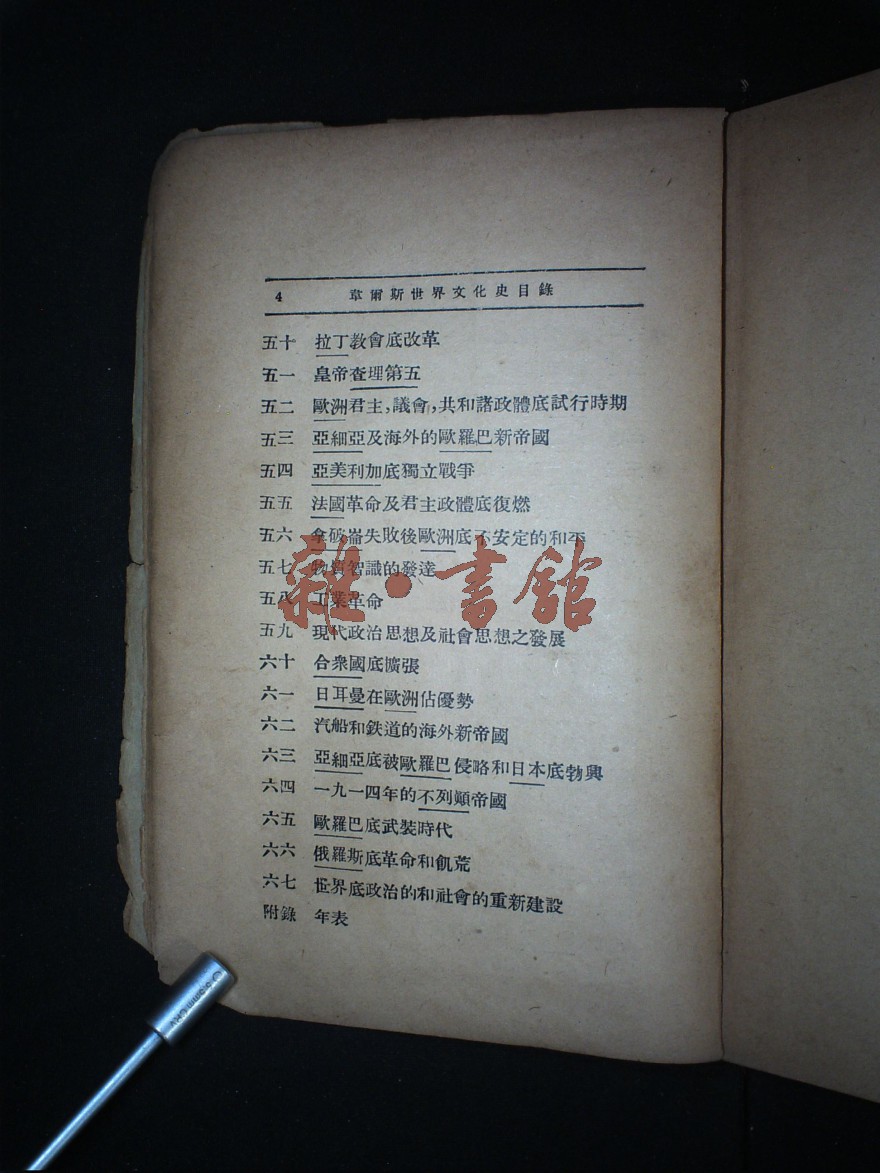 4 韋爾斯世界文化史目錄
五十 拉丁教會底改革
五一 皇帝查理第五
五二 歐洲君主,議會,共和諸政體底試行時期
五三 亞細亞及海外的歐羅巴新帝國
五四 亞美利加底獨立戰爭
五五 法國革命及君主政體底復燃
五六 拿破崙失敗後歐洲底不安定的和平
五七 物質智識的發達
五八 工業革命
五九 現代政治思想及社會思想之發展
六十 合衆國底擴張
六一 日耳曼在歐洲佔優勢
六二 汽船和鉄道的海外新帝國
六三 亞細亞底被歐羅巴侵略和日本底勃興
六四 一九一四年的不列顚帝國
六五 歐羅巴底武裝時代
六六 俄羅斯底革命和飢荒
六七 世界底政治的和社會的重新建設
附錄 年表
雜·書館